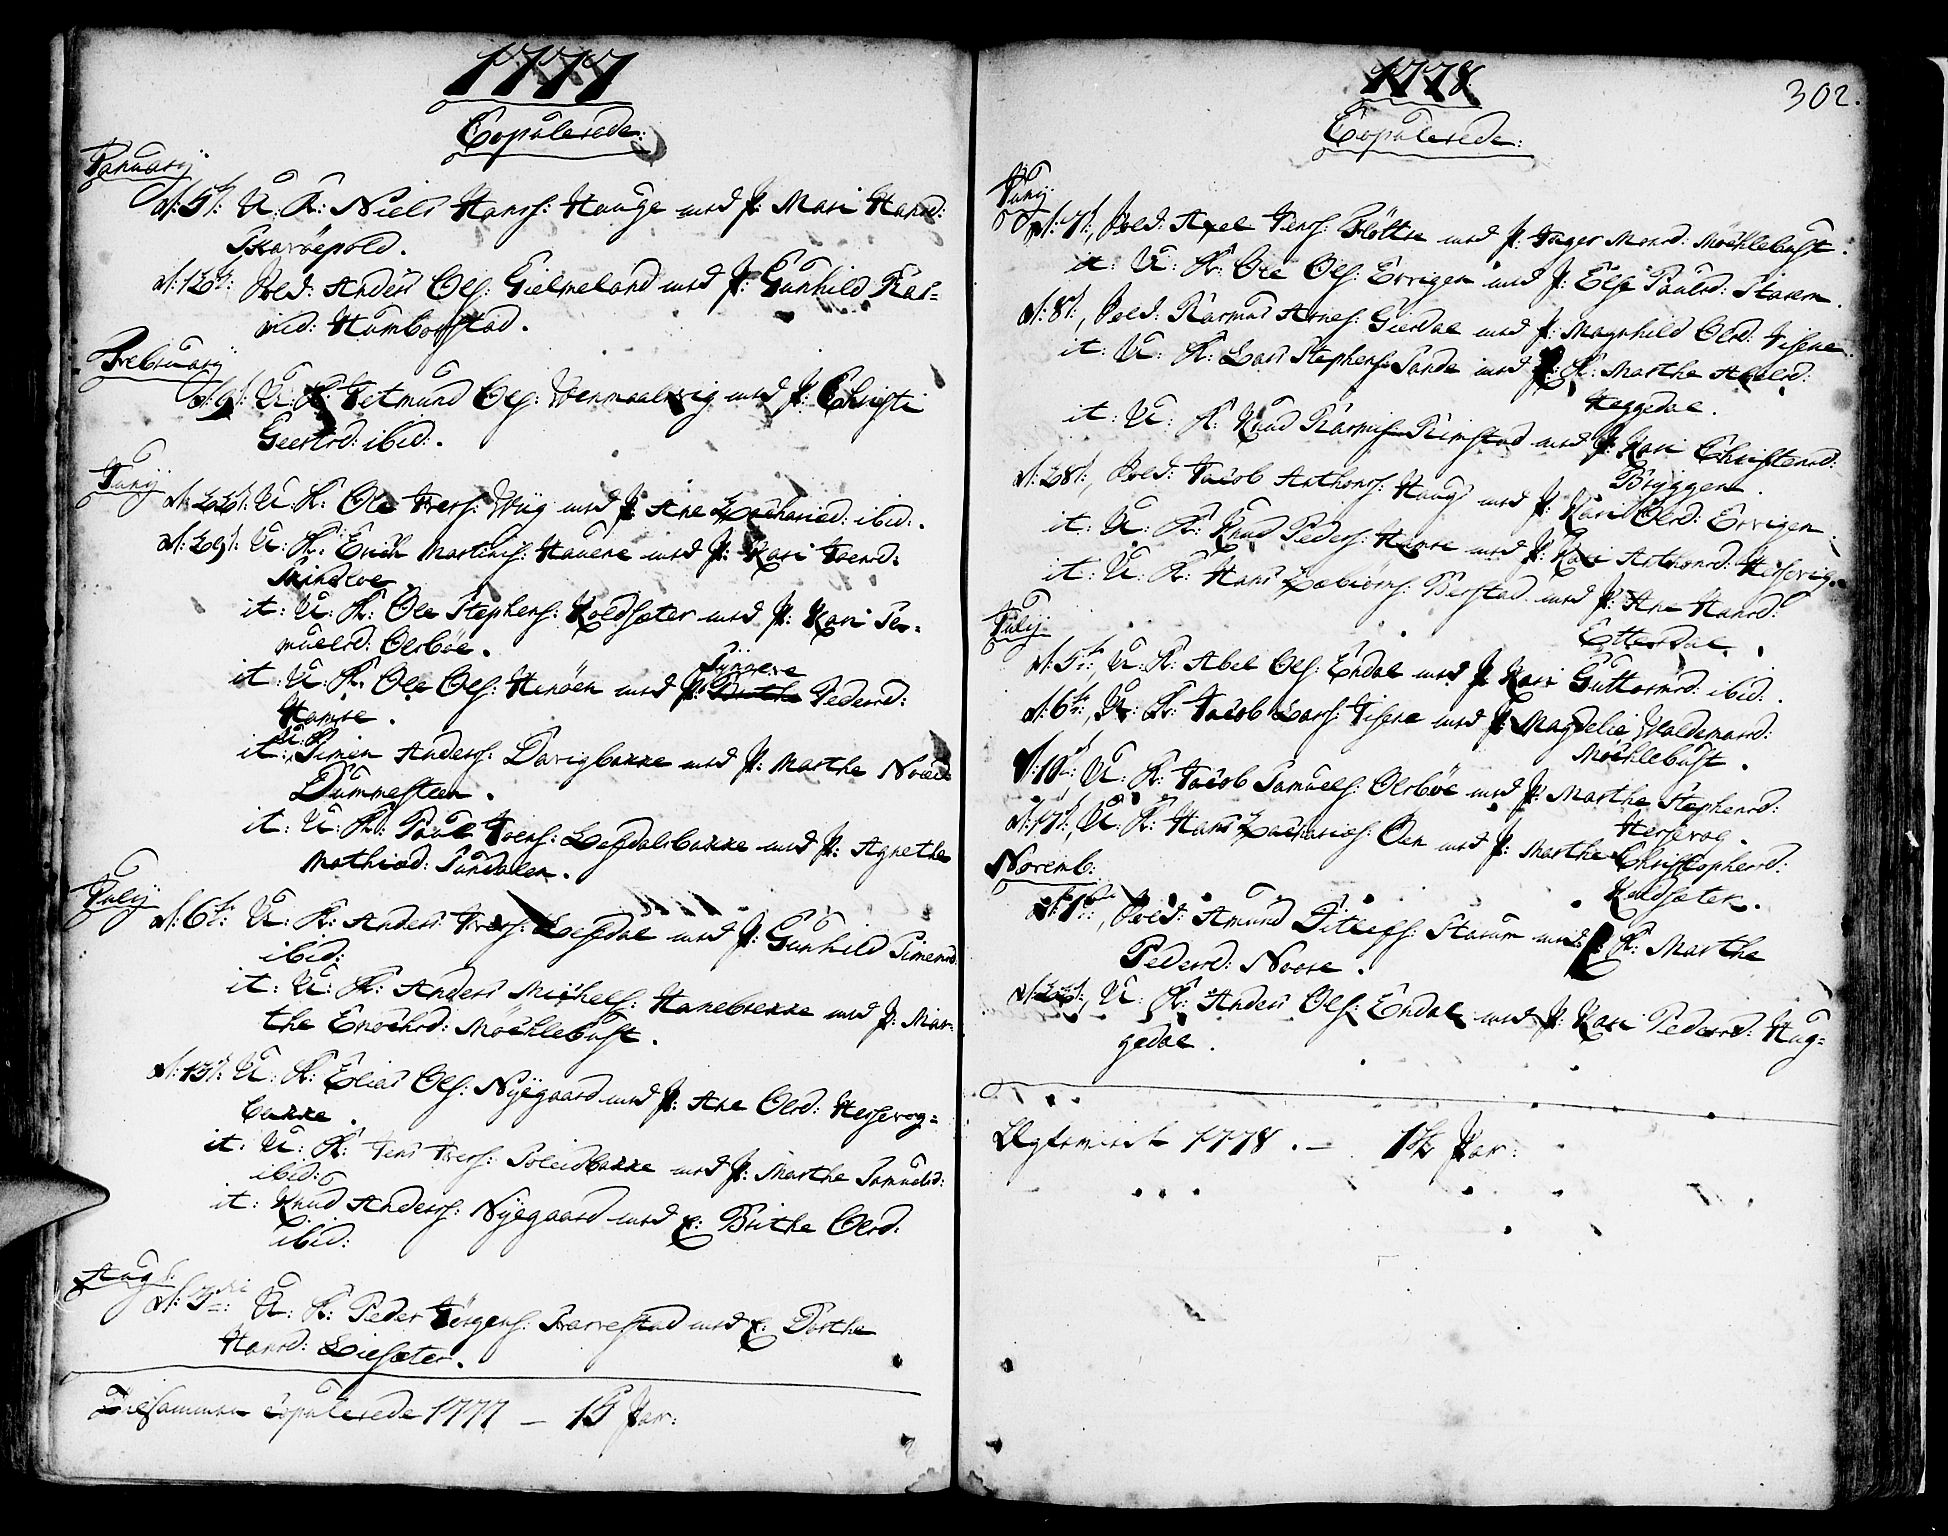 1777
Copulerede:
Januarij
d: 5t: U: K: Niels Hanss: Hauge med P: Mari Hansd:
Skarøepold.
d: 12t: Sold: Anders Ols: Gielmeland med P: Gunhild Ras-
mid: Humborstad.
Februarij
d: 9t: U: K: Tetmund Ols: Wenmaalvig med P: Christi
Geertsd: ibid:.
Junij
d: 22t: U: K: Ole Ivers: Wiig med P: Ane Zachariæd: ibid:.
d: 29t: U: K: Erich Martinus: Hauene med P: Kari Joensd:
Rindene
it: U: K: Ole Stephens: Koldsæter med P: Kari Sa-
muelsd: Olsbøe.
it: U: K: Ole Ols: Henøen med P: Syngere Pedersd:
Hamre.
it: U: K: Simen Anderss: Davigbakke med P: Marthe Noæd
Dummesteen.
it: U: K: Paul Joens: Lefdalsbakke med P: Agnethe
Mathiæd: Sundalen.
Julij
d: 6t: U: K: Anders Ivers: Lefdal med P: Gunhild Simensd:
ibid:
it: U: K: Anders Michels: Hanebrekke med P: Mar-
the Enochsd: Møchlebust.
d: 13t: U: K: Elias Ols: Nyegaard med P: Ane Olsd: Hessevog-
bakke.
it: U: K: Jens Ivers: Soleidbakke med P: Marthe Samuelsd:
ibid:
it: Knud Anderss: Nyegaard med E: Brithe Olsd:
ibid:
Aug:
d: 3die: U: K: Peder Jørgens: Starrestad med E: Dorthe
Hansd: Liesæter.
Tilsammen copulerede 1777 – 15 Par:
1778
302.
Copulerede:
Junij
d: 7t, Sold: Axel Jens: Bløttre med P: Inger Monsd: Møchlebust.
it: U: K: Ole Ols: Ervigen med P: Else Poulsd: Starem.
d: 8t, Sold: Rasmus Arnes: Gierdal med P: Magnhild Olsd: Tisene.
it: U: K: Lars Stephens: Sande med K: Marthe Abelsd:
Haggedal.
it: U: K: Knud Rasmus: Rimstad med P: Kari Christensd:
Bryggen.
d: 28t, Sold: Jacob Anthons: Haugs med P: Kari Olsd: Ervigen.
it: U: K: Knud Peders: Hamre med P: Kari Anthonsd: Hessevig.
it: U: K: Hans Zabiørns: Barstad med P: Ane Hansd:
Etterdal.
Julij
d: 5t:, U: K: Abel Ols: Endal med P: Kari Guttormsd: ibid:
d: 6t:, U: K: Jacob Lars: Tisene med P: Magdelie Waldemarsd:
Møchlebust.
d: 10t:, U: K: Jacob Samuels: Olsbøe med P: Marthe Stephensd:
Hessevog.
d: 17t, U: K: Hans Zacharias: Oen med P: Marthe Christophersd:
Koldsæter.
Novemb:
d: 1t:, Sold: Amund Ditlefs: Starum med K: Marthe
Pedersd: Noore.
d: 22t, U: K: Anders Ols: Endal med P: Kari Pedersd: Hag-
gedal.
Ugteviet 1778. – 14 Par: